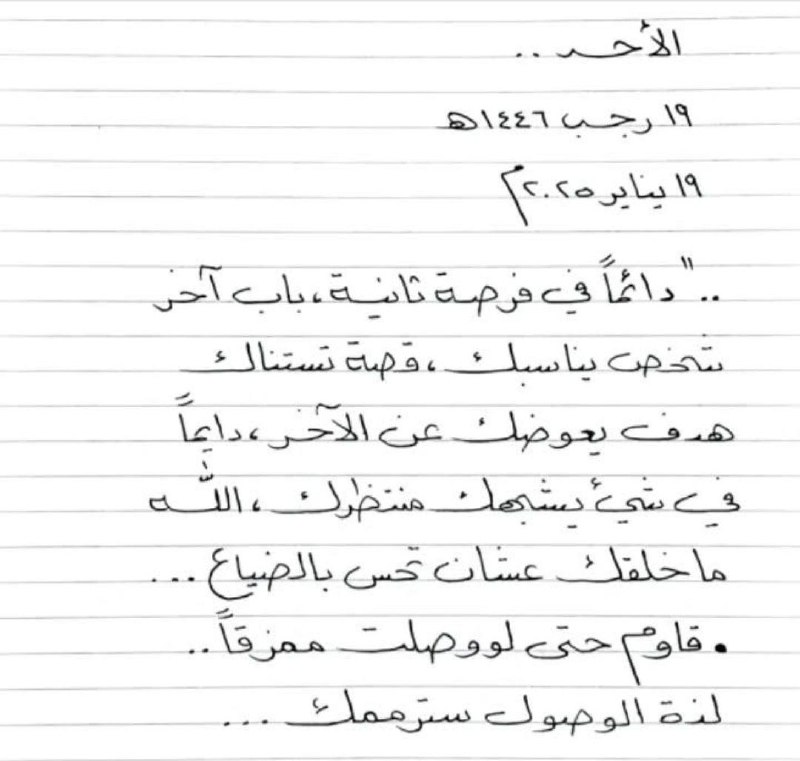 الأحد ..
١٩ رجب ١٤٤٦هـ
١٩ يناير ٢٠٢٥م
.." دائماً في فرصة ثانية ، باب آخر
شخص يناسبك ، قصة تستناك
هدف يعوضك عن الآخر ، دايماً
في شئ يشبهك منتظرك ، الله
ما خلقك عشان تحس بالضياع ...
. قاوم حتى لو وصلت ممزقاً ..
لذة الوصول سترممك ...